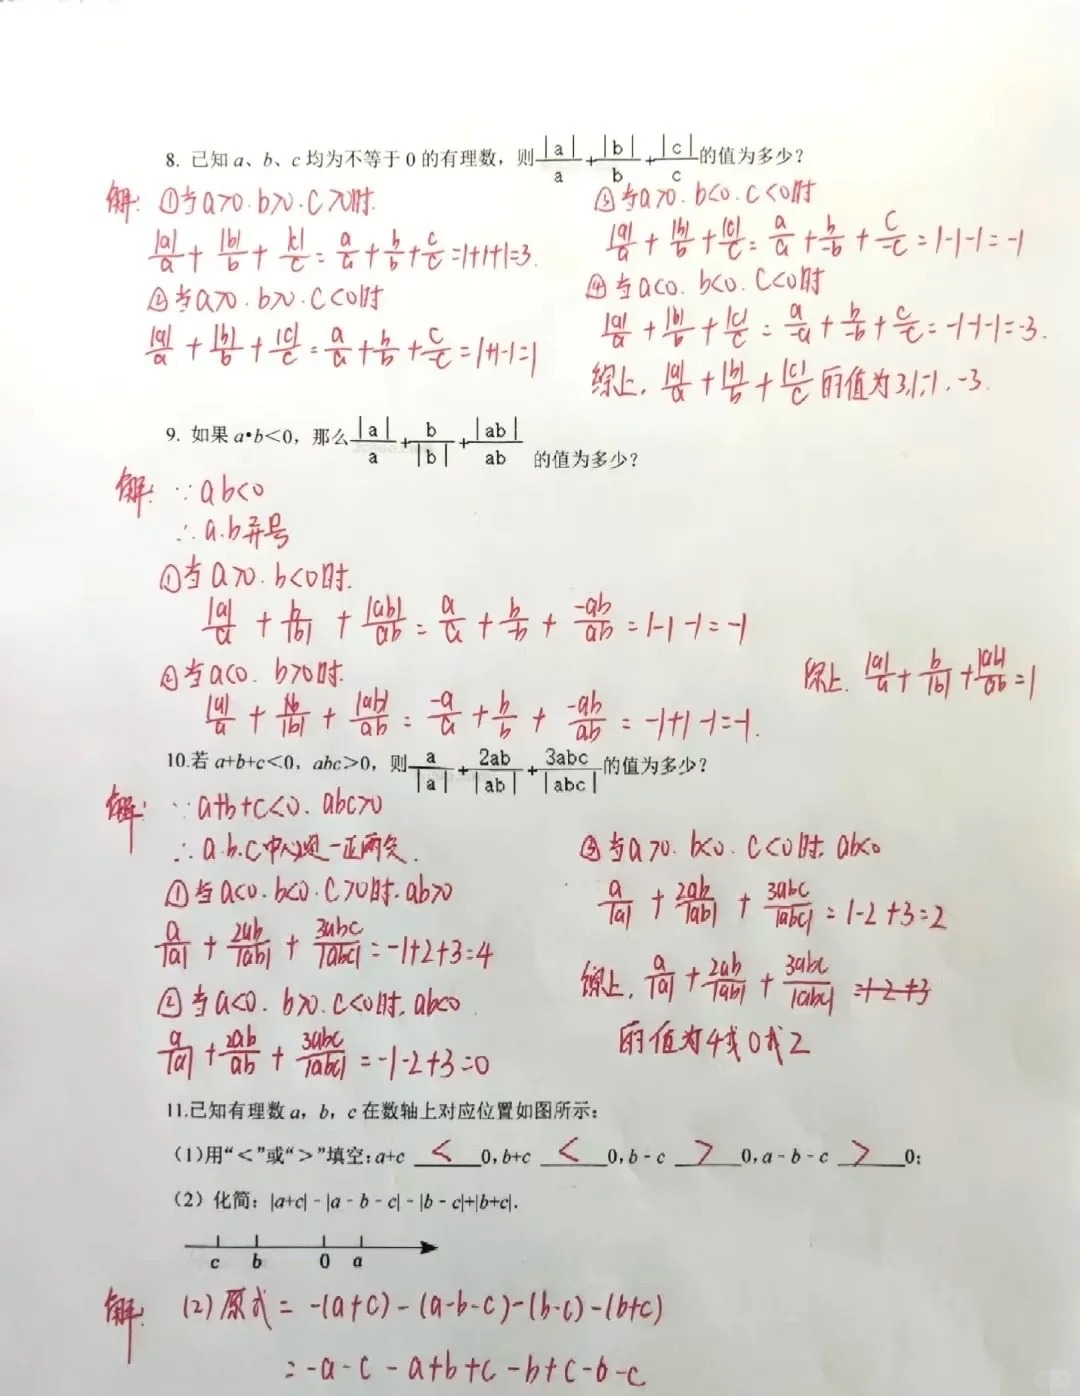 8. 已知 a、b、c 均为不等于 0 的有理数，则|a|/a+|b|/b+|c|/c的值为多少？
解: ①当a>0.b>0.c>0时.
|a|/a + |b|/b + |c|/c = a/a + b/b + c/c =1+1+1=3.
②当a>0.b>0.c<0时
|a|/a + |b|/b + |c|/c = a/a + b/b + c/-c =1+1-1=1
③当a>0.b<0.c<0时
|a|/a + |b|/b + |c|/c = a/a + b/-b + c/-c =1-1-1=-1
④当a<0.b<0.c<0时
|a|/a + |b|/b + |c|/c = a/-a + b/-b + c/-c =-1-1-1=-3.
综上, |a|/a + |b|/b + |c|/c 的值为3,1,-1,-3.
9. 如果 a•b<0，那么|a|/a+b/|b|+|ab|/ab 的值为多少？
解: ∵ab<0
∴a.b异号
①当a>0.b<0时.
|a|/a + b/|b| + |ab|/ab = a/a + b/-b + -ab/ab =1-1-1=-1
②当a<0.b>0时.
|a|/a + b/|b| + |ab|/ab = -a/a + b/b + -ab/ab =-1+1-1=-1.
综上. |a|/a + b/|b| + |ab|/ab =1
10.若 a+b+c<0，abc>0，则a/|a|+2ab/|ab|+3abc/|abc|的值为多少？
解: ∵a+b+c<0.abc>0
∴a.b.c中必是一正两负.
①当a<0.b<0.c>0时.ab>0
a/|a| + 2ab/|ab| + 3abc/|abc| =-1+2+3=4
②当a<0.b>0.c<0时.ab<0
a/|a| + 2ab/ab + 3abc/|abc| =-1-2+3=0
③当a>0.b<0.c<0时.ab<0
a/|a| + 2ab/|ab| + 3abc/|abc| =1-2+3=2
综上, a/|a| + 2ab/|ab| + 3abc/|abc|
的值为4或0或2
11.已知有理数 a，b，c 在数轴上对应位置如图所示：
(1)用“<”或“>”填空:a+c < 0,b+c < 0,b-c > 0,a-b-c > 0;
(2) 化简: |a+c|-|a-b-c|-|b-c|+|b+c|.
c b 0 a
解: (2)原式= -(a+c)-(a-b-c)-(b-c)-(b+c)
=-a-c-a+b+c-b+c-b-c